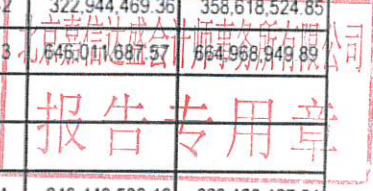 2 322,944,469.36 358,618,524.85
3 646,011,687.57 664,968,949.89
北京嘉信达盛会计师事务所有限公司
报告专用章